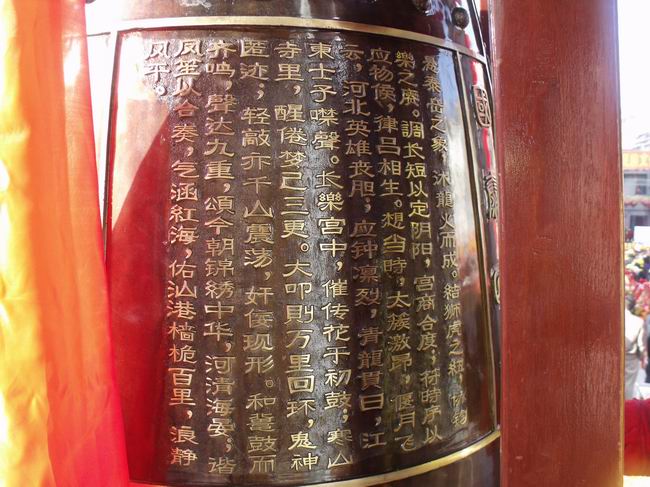 悬泰岳之象，沐龍火而成。結狮虎之紐，协钧
樂之。調长短以定阴阳，宫商合度；符時序以
应物候，律吕相生。想当時，太簇激昂，偃月飞
云，河北英雄丧胆；应钟凛烈，青龍貫日，江
東士子噤聲。长樂宫中，催传花于初鼓；寒山
寺里，醒倦梦已三更。大叩則万里回环，鬼神
匿迹；轻敲亦千山震荡，奸佞现形。和鼍鼓而
齐鸣，聲达九重，頌今朝锦绣中华，河清海晏；谐
凤笙以合奏，气涵紅海，佑汕港樯桅百里，浪静
风平。